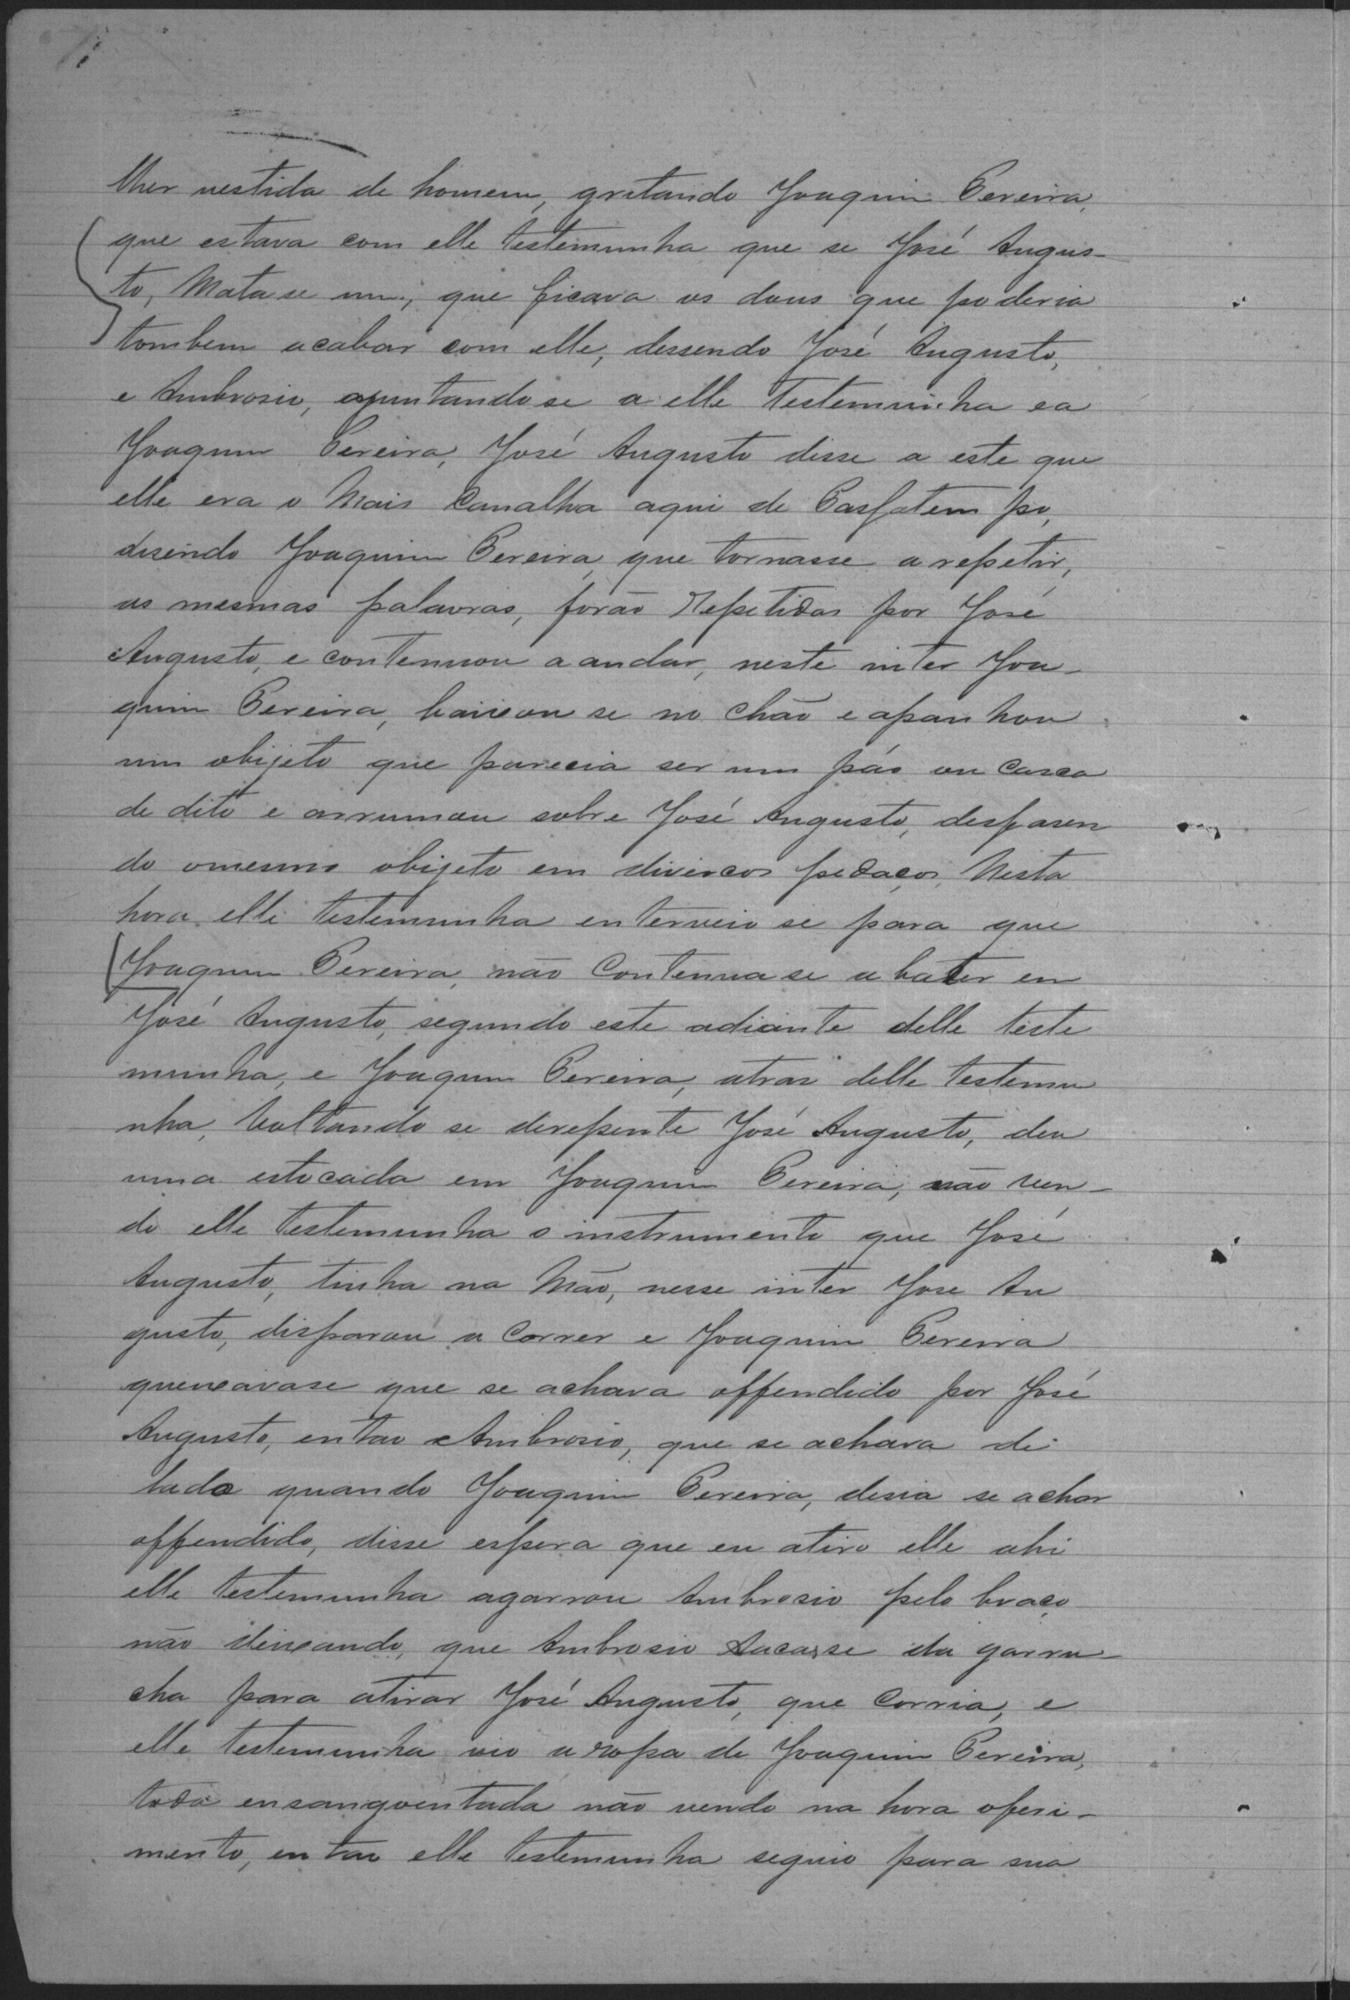 lher vestida de homem, gritando Joaquim Pereira,
que estava com elle testemunha que se José Augus-
to, Matase um, que ficava os dous que poderia
tombem acabar com elle, dessendo José Augusto,
e Ambrosio, ajuntandose a elle testemunha ea
Joaquim Pereira, José Augusto disse a este que
elle era o Mais Canalha aqui de
disendo Joaquim Pereira, que tornasse a repetir,
as mesmas palavras, forão Repetidas por José
Augusto, e contenuou a andar, neste inter Joa-
quim Pereira, baixou se no chão e apanhou
um obijeto que parecia ser um páo ou casca
de dito e arrumou sobre José Augusto, desfasen
do omesmo obijeto em divercos pedaços, Nesta
hora elle testemunha enterveio se para que
Joaquim Pereira, não Contenuase a bater em
José Augusto, seguindo este adiante delle teste
munha, e Joaquim Pereira, atras delle testemu
nha, Voltando se derepente José Augusto, deu
uma estocada em Joaquim Pereira, não ven-
do elle testemunha o instrumento que José
Augusto, tinha na Mão, nesse inter Jose Au
gusto, disparou a Correr e Joaquim Pereira
queixavase que se achava offendido por José
Augusto, entao Ambrosio, que se achava de
lado quando Joaquim Pereira, desia se achar
offendido, disse espera que eu atiro elle ahi
elle testemunha agarrou Ambrosio pelo braço
não deixando, que Ambrosio Sacasse da garru-
cha para atirar José Augusto, que Corria, e
elle testemunha vio a ropa de Joaquim Pereira,
toda ensangoentada não vendo na hora oferi-
mento, entao elle testemunha seguio para sua